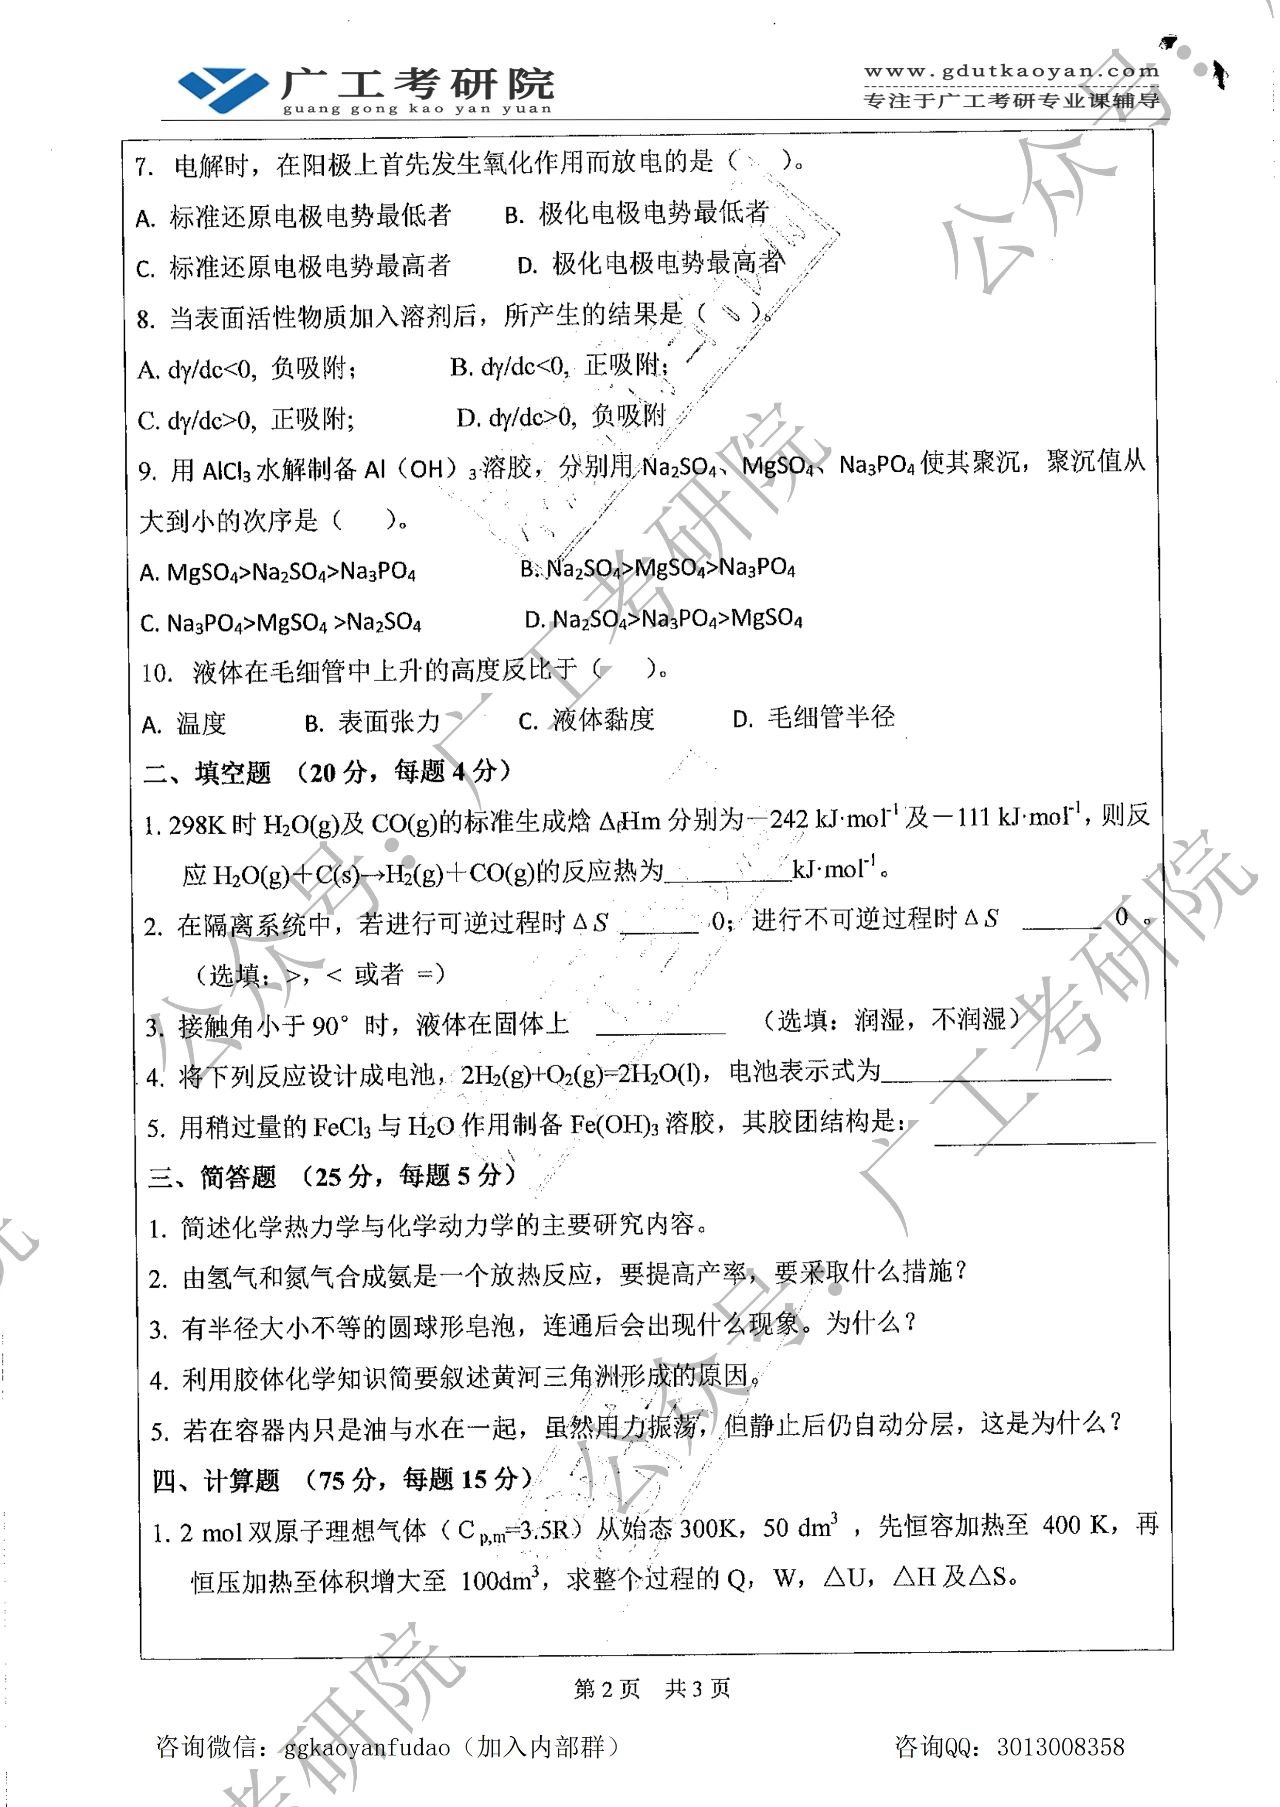 广工考研院
guang gong kao yan yuan
www.gdutkaoyan.com
专注于广工考研专业课辅导
7. 电解时，在阳极上首先发生氧化作用而放电的是（  ）。
A. 标准还原电极电势最低者 B. 极化电极电势最低者
C. 标准还原电极电势最高者 D. 极化电极电势最高者
8. 当表面活性物质加入溶剂后，所产生的结果是（  ）。
A. dγ/dc<0, 负吸附； B. dγ/dc<0, 正吸附；
C. dγ/dc>0, 正吸附; D. dγ/dc>0, 负吸附
9. 用 AlCl₃ 水解制备 Al（OH）₃ 溶胶，分别用 Na₂SO₄、MgSO₄、Na₃PO₄ 使其聚沉，聚沉值从
大到小的次序是（  ）。
A. MgSO₄>Na₂SO₄>Na₃PO₄ B. Na₂SO₄>MgSO₄>Na₃PO₄
C. Na₃PO₄>MgSO₄ >Na₂SO₄ D. Na₂SO₄>Na₃PO₄>MgSO₄
10. 液体在毛细管中上升的高度反比于（  ）。
A. 温度 B. 表面张力 C. 液体黏度 D. 毛细管半径
二、填空题 （20 分，每题 4 分）
1. 298K 时 H₂O(g)及 CO(g)的标准生成焓 ΔfHm 分别为－242 kJ·mol⁻¹ 及－111 kJ·mol⁻¹，则反
应 H₂O(g)＋C(s)→H₂(g)＋CO(g)的反应热为__________kJ·mol⁻¹。
2. 在隔离系统中，若进行可逆过程时 Δ S ______ 0；进行不可逆过程时 Δ S ______ 0 。
（选填：>，< 或者 =）
3. 接触角小于 90° 时，液体在固体上 __________ （选填：润湿，不润湿）
4. 将下列反应设计成电池，2H₂(g)+O₂(g)=2H₂O(l)，电池表示式为__________________
5. 用稍过量的 FeCl₃ 与 H₂O 作用制备 Fe(OH)₃ 溶胶，其胶团结构是：__________________
三、简答题 （25 分，每题 5 分）
1. 简述化学热力学与化学动力学的主要研究内容。
2. 由氢气和氮气合成氨是一个放热反应，要提高产率，要采取什么措施？
3. 有半径大小不等的圆球形皂泡，连通后会出现什么现象。为什么？
4. 利用胶体化学知识简要叙述黄河三角洲形成的原因。
5. 若在容器内只是油与水在一起，虽然用力振荡，但静止后仍自动分层，这是为什么？
四、计算题 （75 分，每题 15 分）
1. 2 mol 双原子理想气体（C p,m=3.5R）从始态 300K，50 dm³ ，先恒容加热至 400 K，再
恒压加热至体积增大至 100dm³，求整个过程的 Q，W，△U，△H 及△S。
第 2 页 共 3 页
咨询微信：ggkaoyanfudao（加入内部群） 咨询QQ：3013008358
公众号：广工考研院
公众号：广工考研院